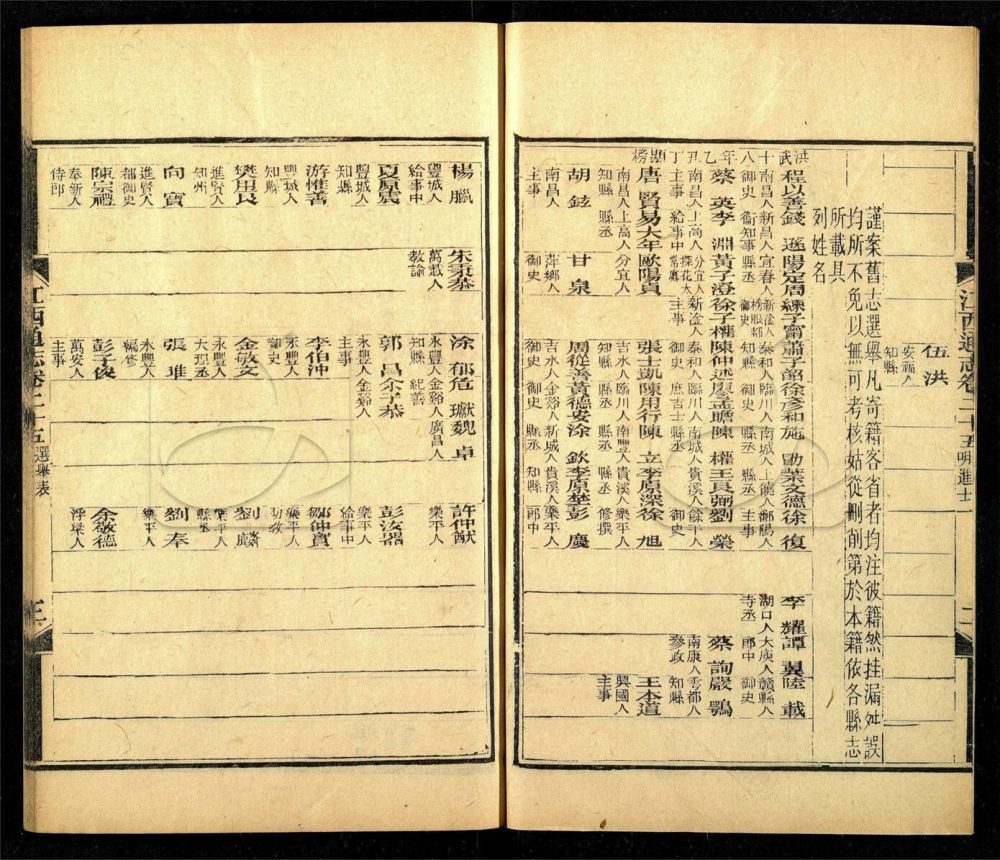 江西通志卷二十五 明進士 二
伍洪
安福人
知縣
謹案舊志選舉凡寄籍客省者均注彼籍然挂漏舛誤
均所不免以無可考核姑從刪削第於本籍依各縣志
所載具
列姓名
洪武
十
八
年乙
丑
丁
顯榜
程以善錢 遜陽定周練子甯蕭子韶徐彥和施 勛葉文德徐 復 李 耀譚 翼陸 載
南昌人新昌人宜春人新淦人泰和人臨川人南城人上饒人鄱陽人 湖口人大庾人贛縣人
御史 衞知事縣丞 榜眼都御史 知縣 御史 縣丞 主事 寺丞 郎中 御史
蔡 英李 淵黃子澄徐子權陳仲述廖孟瞻陳 權王良弼劉 榮 蔡 詢嚴 鶚
南昌人上高人分宜人新淦人泰和人臨川人南城人貴溪人餘干人 南康人雩都人
主事 給事中探花太常卿 主事 御史 庶吉士縣丞 御史 參政 知縣
唐 賢易大年歐陽貞 張士凱陳用行陳 立李原深徐 旭 王本道
南昌人上高人分宜人 吉水人臨川人南豐人貴溪人樂平人 興國人
知縣 縣丞 知縣 知縣 縣丞 縣丞 修撰 主事
胡 鉉 甘 泉 周從善黃德安涂 欽李原楚彭 慶
南昌人 萍鄉人 吉水人金谿人新城人貴溪人樂平人
主事 御史 御史 御史 縣丞 知縣 郎中
楊 臘 朱秉恭 涂 郁危 瓛魏 卓 許仲猷
豐城人 萬載人 永豐人金谿人廣昌人 樂平人
給事中 教諭 知縣 紀善
夏原宬 郭 昌余子恭 彭汝器
豐城人 永豐人金谿人 樂平人
知縣 主事 給事中
游惟善 李伯沖 鄒仲實
豐城人 永豐人 樂平人
知縣 御史 助教
樊用良 金敏文 劉 麟
進賢人 永豐人 樂平人
知州 大理丞 縣丞
向 寶 張 唯 劉 奉
進賢人 永豐人 樂平人
都御史 編修
陳宗禮 彭子俊 余敬德
奉新人 萬安人 浮梁人
侍郎 主事
江西通志卷二十五 選舉表 三